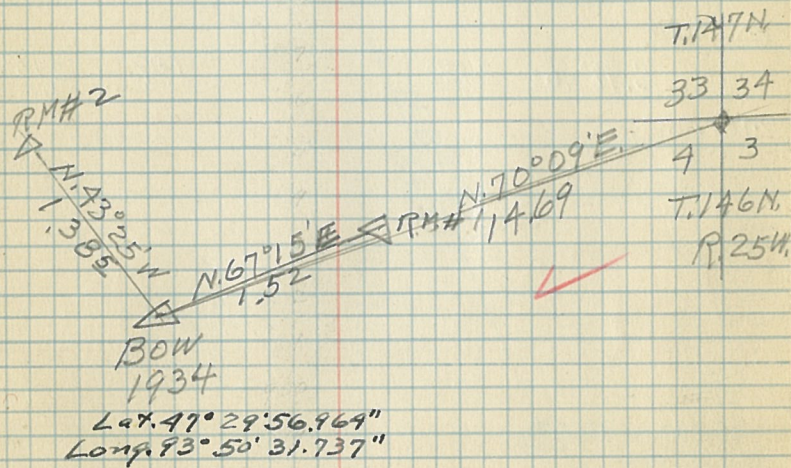 T.147N.
33 34
4 3
T.146N.
R.25W.
RM#2
N.43°25'W
1.385
N.70°09'E.
14.69
RM#1
N.67°15'E
1.52
BOW
1934
Lat. 47° 29' 56.964"
Long. 93° 50' 31.737"